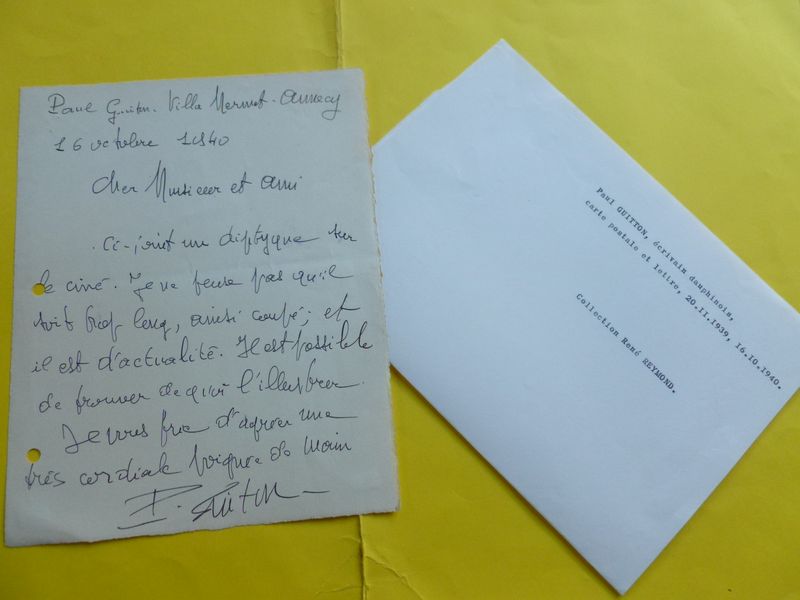 Paul Guiton. Villa Mermet. Annecy
16 octobre 1940
Cher Monsieur et ami
Ci-joint un diptyque sur
le ciné. Je ne pense pas qu'il
soit trop long, ainsi coupé; et
il est d'actualité. Il est possible
de trouver de quoi l'illustrer.
Je vous prie d'agréer une
très cordiale poignée de main
P. Guiton
Paul GUITTON, écrivain dauphinois,
carte postale et lettre, 20.11.1939, 16.10.1940.
Collection René REYMOND.